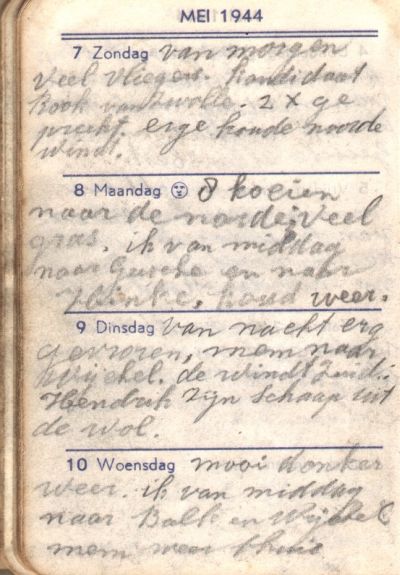 MEI 1944
7 Zondag van morgen
veel vliegen. kandidaat
Kook van Zwolle. 2 x ge
preekt. erge koude noorde
windt.
8 Maandag 8 koeien
naar de noorde. veel
gras. ik van middag
naar en naar
Hinke, koud weer.
9 Dinsdag van nacht erg
gevroren, mem naar
Wijckel. de windt Zuid.
Hendrik zijn schaap uit
de wol.
10 Woensdag mooi donker
weer. ik van middag
naar Balk en Wijckel
mem weer thuis